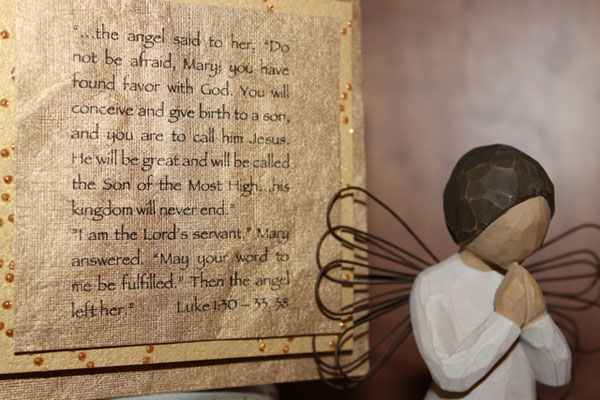 "...the angel said to her, "Do
not be afraid, Mary; you have
found favor with God. You will
conceive and give birth to a son,
and you are to call him Jesus.
He will be great and will be called
the Son of the Most High...his
kingdom will never end."
"I am the Lord's servant." Mary
answered. "May your word to
me be fulfilled." Then the angel
left her." Luke 1:30 – 33, 38